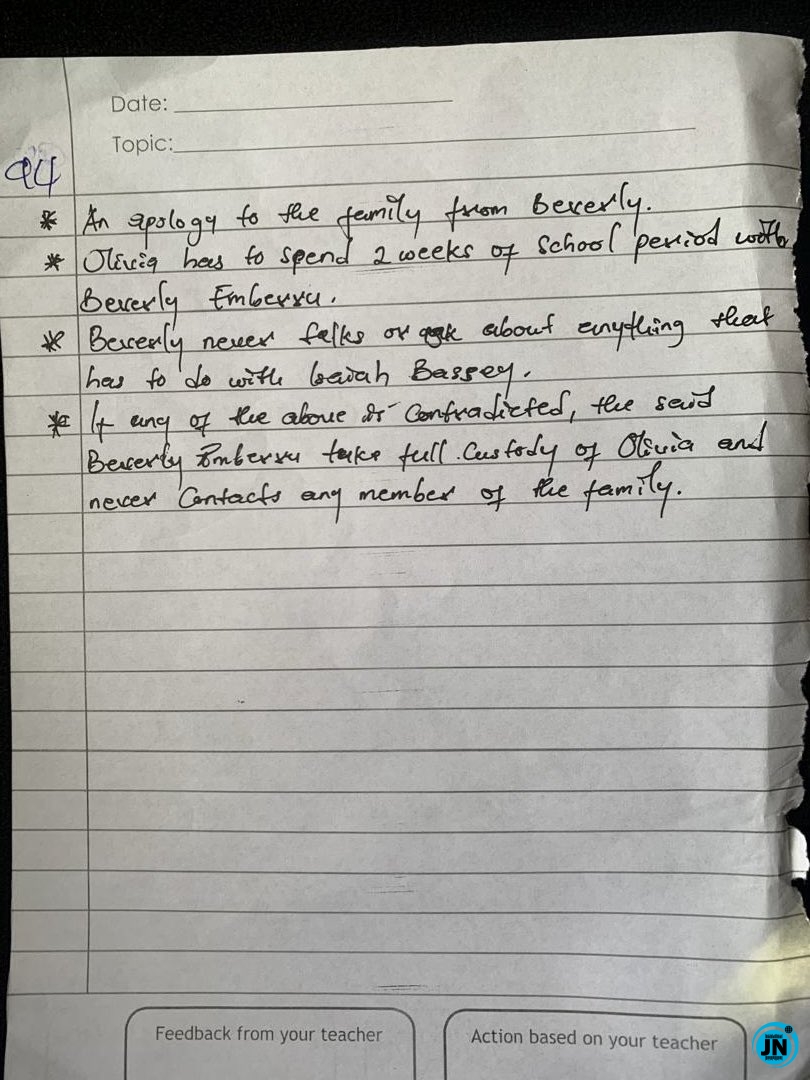 Date:
Topic:
94
* An apology to the family from Beverly.
* Olivia has to spend 2 weeks of school period with
Beverly Emberru.
* Beverly never talks or ask about anything that
has to do with Isaiah Bassey.
* If any of the above is contradicted, the said
Beverly Emberru take full custody of Olivia and
never contacts any member of the family.
Feedback from your teacher
Action based on your teacher
JN